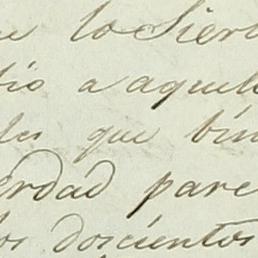 e lo Sier
tio a aquel
les que bin
erdad pare
los doscientos